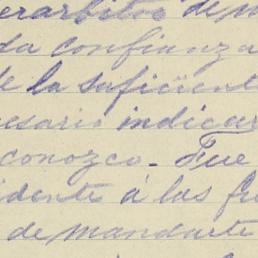 erarbitos de m
da confianza
de la suficiente
esario indicar
conozco. Fue
idente á las fr
de mandarte